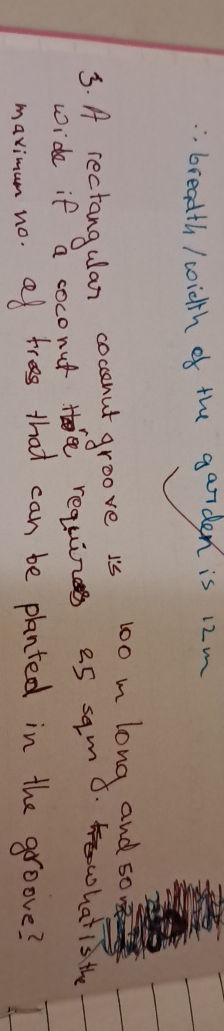 ∴ breadth / width of the garden is 12 m
3. A rectangular cocanut groove is 100 m long and 50 m
wide if a coconut tree requires 25 sqm. what is the
maximum no. of tress that can be planted in the groove?